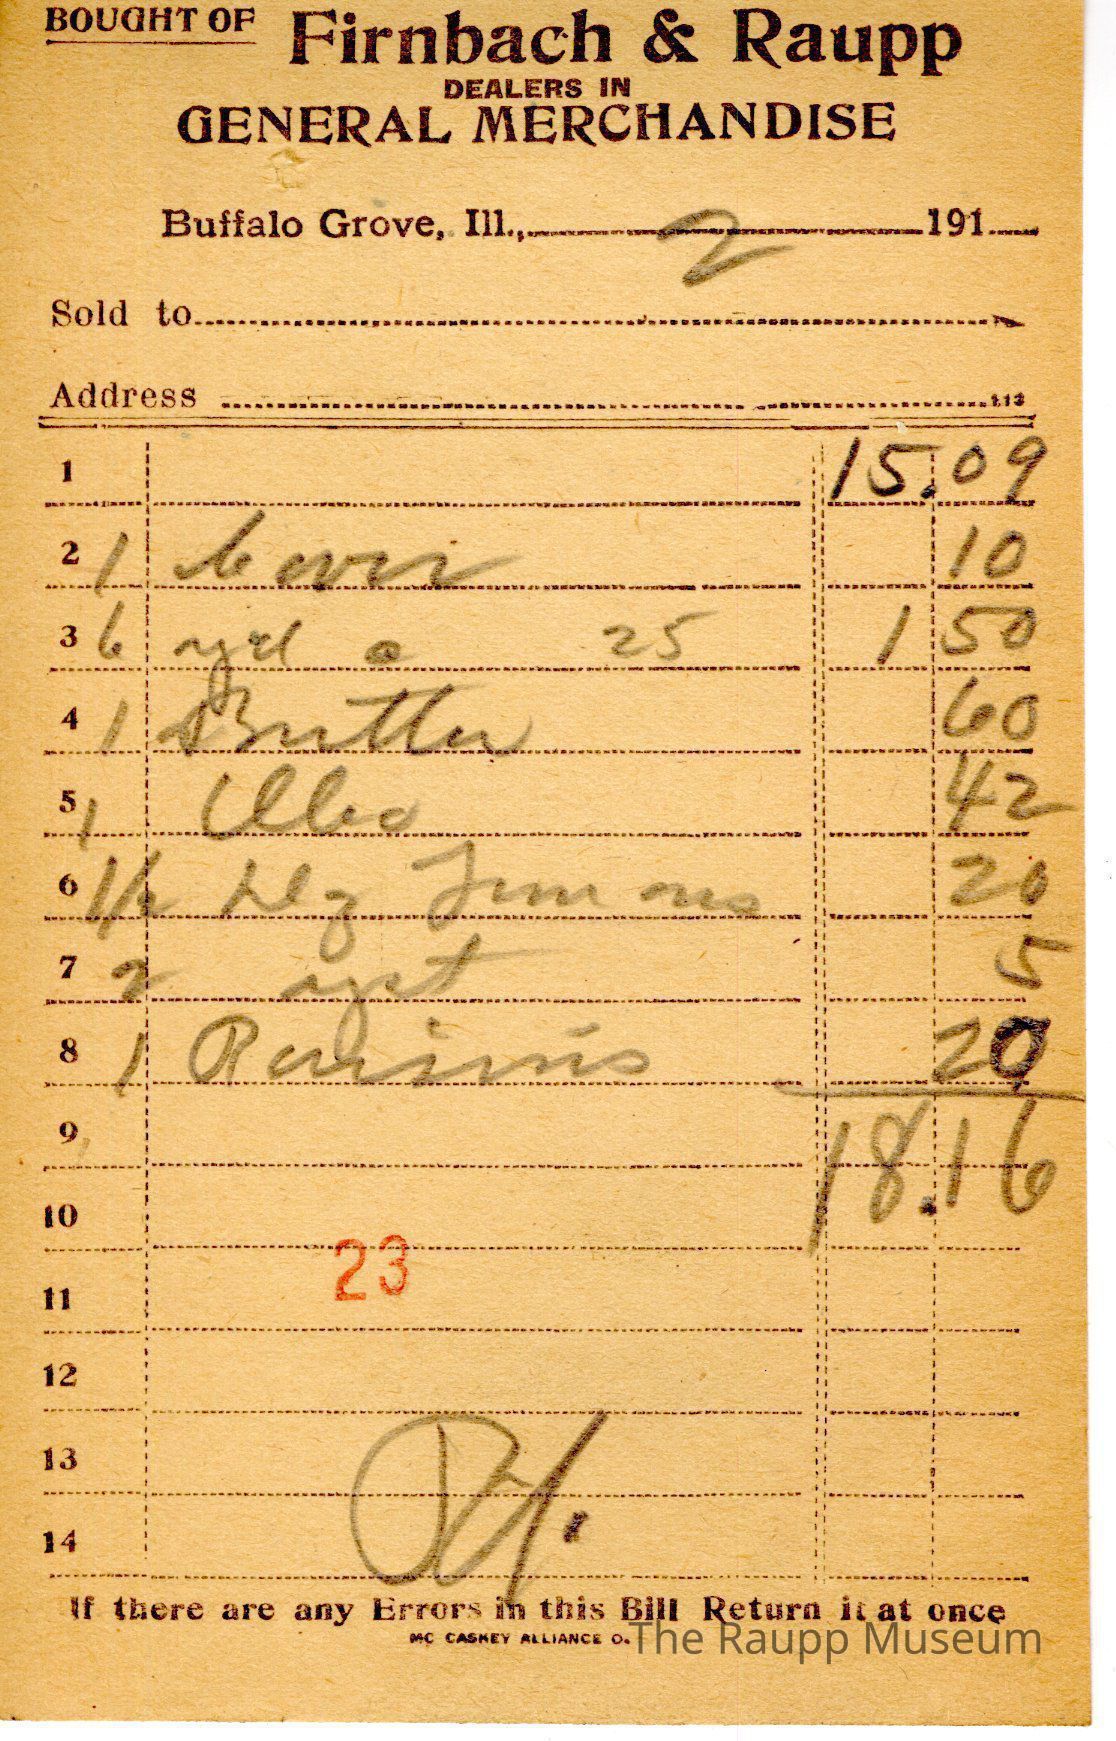 BOUGHT OF Firnbach & Raupp
DEALERS IN
GENERAL MERCHANDISE
Buffalo Grove, Ill., 2 191
Sold to
Address 113
1 15.09
2 1 Cover 10
3 6 yd a 25 1 50
4 1 Butter 60
5 1 Oleo 42
6 1/2 Dz 20
7 2 yst 5
8 1 Raisins 20
9 18.16
10
23
11
12
13
14
If there are any Errors in this Bill Return it at once
MC CASKEY ALLIANCE O.
The Raupp Museum